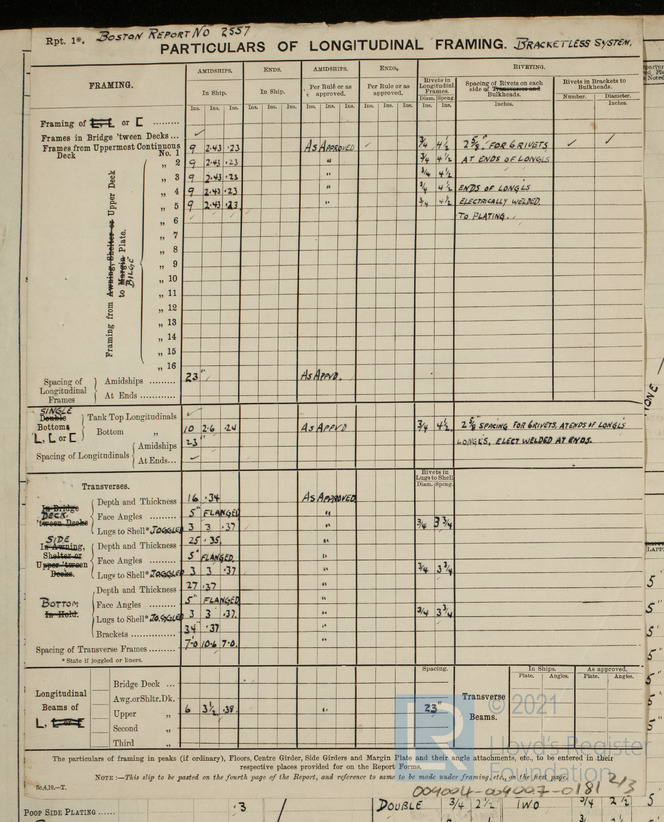 Rpt. 1*. BOSTON REPORT NO 2557
PARTICULARS OF LONGITUDINAL FRAMING. BRACKETLESS SYSTEM.
FRAMING. AMIDSHIPS. ENDS. AMIDSHIPS. ENDS. RIVETING.
In Ship. In Ship. Per Rule or as approved. Per Rule or as approved. Rivets in Longitudinal Frames. Spacing of Rivets on each side of Transverses and Bulkheads. Rivets in Brackets to Bulkheads.
Ins. Ins. Ins. Ins. Ins. Ins. Ins. Ins. Ins. Ins. Ins. Ins. Diam. Spcng. Inches. Number. Diameter. Inches.
Framing of L or [
Frames in Bridge 'tween Decks ... ✓
Frames from Uppermost Continuous Deck No. 1 9 2.43 .23 AS APPROVED ✓ 3/4 4 1/2 2 5/8" FOR 6 RIVETS ✓ ✓
Framing from Awning, Shelter or Upper Deck to Margin Plate. BILGE
„ 2 9 2.43 .23 „ 3/4 4 1/2 AT ENDS OF LONGLS
„ 3 9 2.43 .23 „ 3/4 4 1/2
„ 4 9 2.43 .23 „ 3/4 4 1/2 ENDS OF LONGLS
„ 5 9 2.43 .23 „ 3/4 4 1/2 ELECTRICALLY WELDED
„ 6 TO PLATING.
„ 7
„ 8
„ 9
„ 10
„ 11
„ 12
„ 13
„ 14
„ 15
„ 16
Spacing of Longitudinal Frames Amidships ......... 23" AS APPVD.
At Ends .........
SINGLE Double Bottoms L, L or [ Tank Top Longitudinals ✓
Bottom „ 10 2.6 .24 AS APPVD 3/4 4 1/2 2 5/8 SPACING FOR 6 RIVETS, AT ENDS OF LONGLS
Spacing of Longitudinals Amidships 23" LONGLS, ELECT WELDED AT ENDS.
At Ends... ✓
Transverses. Rivets in Lugs to Shell Diam. Spcng.
In Bridge 'tween Decks DECK. Depth and Thickness 16 .34 AS APPROVED
Face Angles ...... 5" FLANGED „
Lugs to Shell* JOGGLED 3 3 .37 „ 3/4 3 3/4
SIDE In Awning, Shelter or Upper 'tween Decks. Depth and Thickness 25 .35 „
Face Angles ...... 5" FLANGED „
Lugs to Shell* JOGGLED 3 3 .37 „ 3/4 3 3/4
BOTTOM In Hold. Depth and Thickness 27 .37 „
Face Angles ...... 5" FLANGED „
Lugs to Shell* JOGGLED 3 3 .37 „ 3/4 3 3/4
Brackets ............... 34 .37 „
Spacing of Transverse Frames ... 7-0 10-6 7-0 „
* State if joggled or liners.
Longitudinal Beams of L, Spacing. Transverse Beams. In Ships. As approved.
Plate. Angles. Plate. Angles.
Bridge Deck ...
Awg.orShltr.Dk.
Upper „ 6 3 1/2 .38 „ 23"
Second „
Third „
The particulars of framing in peaks (if ordinary), Floors, Centre Girder, Side Girders and Margin Plate and their angle attachments, etc., to be entered in their
respective places provided for on the Report Forms.
NOTE :—This slip to be pasted on the fourth page of the Report, and reference to same to be made under framing, etc., on the first page.
© 2021
Lloyd's Register
Foundation
004004-004007-0181 2/3
POOP SIDE PLATING ...... .3 DOUBLE 3/4 2 1/2 TWO 3/4 2 1/2